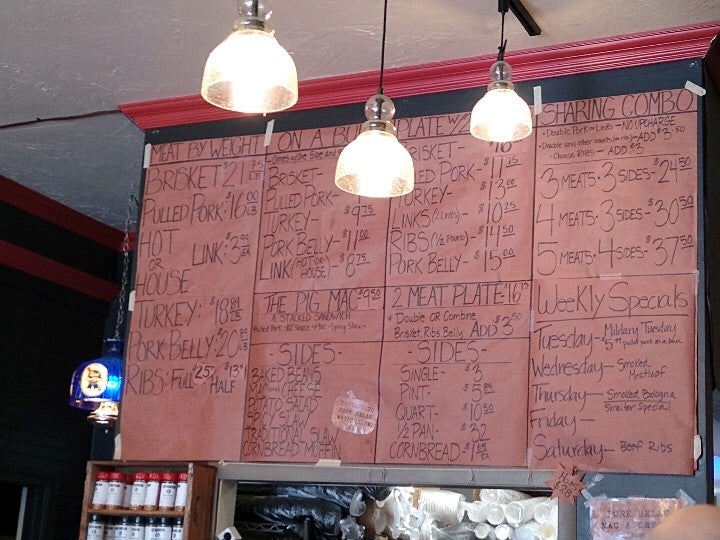 MEAT BY WEIGHT
BRISKET $21.75 LB
PULLED PORK $16.00 LB
HOT
OR
HOUSE
LINK $3.99 EA
TURKEY $18.89 LB
PORK BELLY $20.89 LB
RIBS: FULL $25
HALF
ON A BU
BRISKET-
PULLED PORK- $9.75
TURKEY-
PORK BELLY- $11.00
LINK (HOT OR HOUSE)- $8.75
THE PIG MAC $9.50
A STACKED SANDWICH
-SIDES-
BAKED BEANS
MAC AND CHEESE
POTATO SALAD
SPICY SLAW
TRADITIONAL SLAW
CORNBREAD MUFFIN
PLATE W/2
BRISKET- $16
PULLED PORK- $11.75
TURKEY- $13.00
LINKS (2 LINKS)- $10.25
RIBS (1/2 POUND)- $14.50
PORK BELLY- $15.00
2 MEAT PLATE- $16.75
* DOUBLE OR COMBINE
BRISKET, RIBS, BELLY ADD $3.50
-SIDES-
SINGLE- $3
PINT- $5.89
QUART- $10.50
1/2 PAN- $32
CORNBREAD-
SHARING COMBO
DOUBLE PORK OR LINKS - NO UPCHARGE
ADD $3.50
CHOOSE RIBS - ADD $2
3 MEATS · 3 SIDES- $24.50
4 MEATS · 3 SIDES- $30.50
5 MEATS · 4 SIDES- $37.50
Weekly Specials
Tuesday— Military Tuesday
$5.99 pulled pork on a bun
Wednesday— Smoked Meatloaf
Thursday— Smoked Bologna
Friday—
Saturday— Beef Ribs